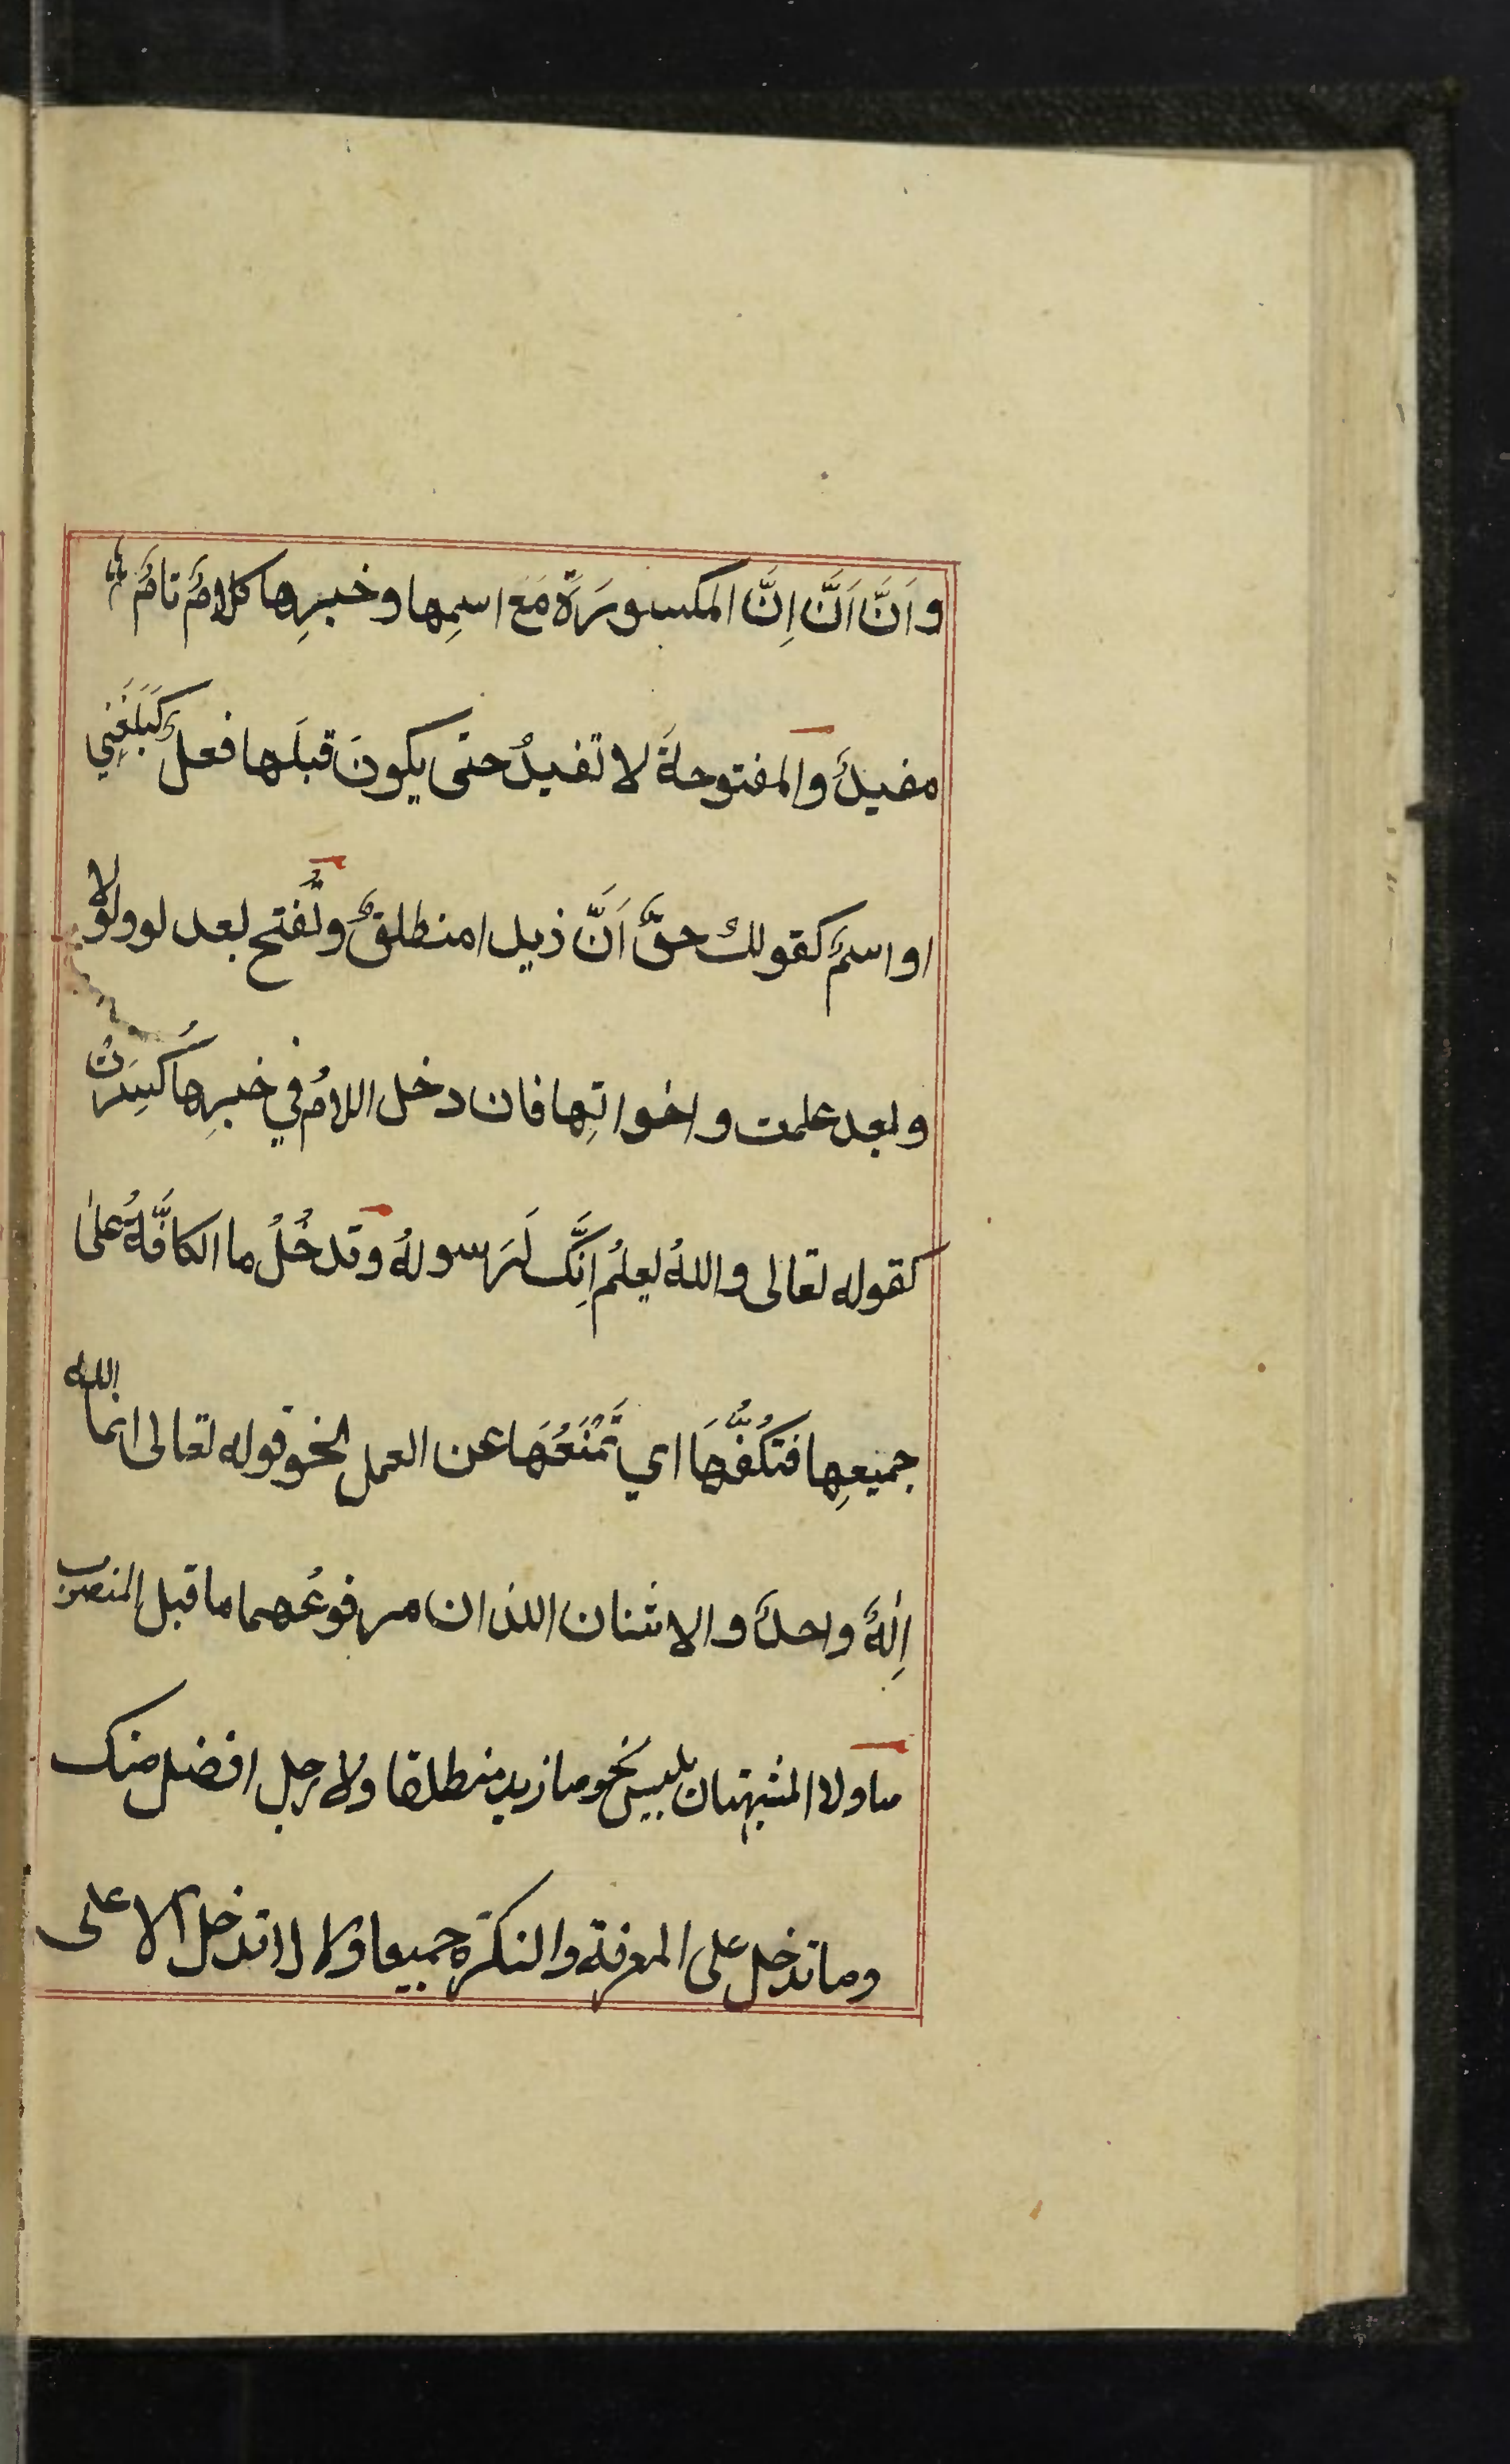 واَنَّ اَنَّ اِنَّ المكسورَةَ مَعَ اسمِها وخبرِها كلامٌ تامٌ
مفيدٌ والمفتوحةَ لا تفيدُ حتى يكونَ قبلَها فعلٌ كَبَلَغَنِي
او اسمٌ كقولك حقٌّ اَنَّ زيدا منطلقٌ وتُفتح بعد لو ولولا
وبعد علمت واخواتِها فان دخل اللامُ في خبرِها كُسِرَتْ
كقوله تعالى واللهُ يعلمُ اِنَّك لَرَسولهُ وتدخُلُ ما الكافَّةُ على
جميعِها فتكُفُّهَا اي تَمْنَعُهَا عن العمل نحو قوله تعالى انما الله
اِلٰهٌ واحدٌ والاثنان اللذان مرفوعُهما ما قبل المنصوب
ما ولا المشبهتان بليس نحو ما زيد منطلقا ولا رجل افضل منك
وما تدخل على المعرفة والنكرة جميعا ولا لا تدخل الا على